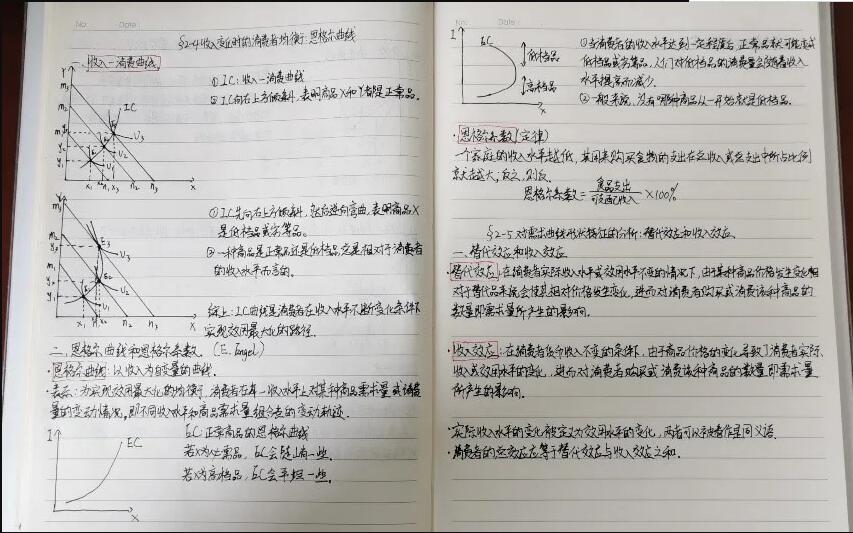 No. Date
§2-4 收入变化时的消费者均衡:恩格尔曲线
一、收入—消费曲线
Y
m3
m2
m1
IC
E3
E2
E1
U3
U2
U1
y3
y2
y1
x1 x2 x3 n1 n2 n3 X
① IC:收入—消费曲线
② IC向右上方倾斜,表明商品X和Y都是正常品.
Y
m3
m2
m1
E3
E2
E1
U2
U1
x1 n1 n2 n3 X
① IC先向右上方倾斜,然后逆向弯曲,表明商品X
是低档品或劣等品。
② 一种商品是正常品还是低档品,定是相对于消费者
的收入水平而言的.
综上:IC曲线是消费者在收入水平不断变化条件下
实现效用最大化的路径.
二、恩格尔曲线和恩格尔系数.(E. Engel)
·恩格尔曲线:以收入为自变量的曲线.
·表示:为实现效用最大化的均衡,消费者在每一收入水平上对某种商品需求量或消费
量的变动情况,即不同收入水平和商品需求量组合点的变动轨迹.
I
EC
X
EC:正常商品的恩格尔曲线
若X为必需品,EC会陡峭一些.
若X为高档品,EC会平坦一些.
No. Date
I
EC
低档品
高档品
X
①当消费者的收入水平达到一定程度后,正常品就可能变成
低档品或劣等品,人们对低档品的消费量会随着收入
水平提高而减少.
②一般来说,没有哪种商品从一开始就是低档品.
·恩格尔系数(定律)
一个家庭的收入水平越低,其用来购买食物的支出在总收入或总支出中所占比例
就越大;反之,则反.
恩格尔系数=食品支出/可支配收入×100%
§2-5 对需求曲线形状特征的分析:替代效应和收入效应.
一、替代效应和收入效应
·替代效应:在消费者实际收入水平或效用水平不变的情况下,由于某种商品价格发生变化相
对于替代品来说会使其相对价格发生变化,进而对消费者购买或消费该种商品的
数量即需求量所产生的影响.
·收入效应:在消费者货币收入不变的条件下,由于商品价格的变化导致了消费者实际
收入或效用水平的变化,进而对消费者购买或消费该种商品的数量即需求量
所产生的影响.
·实际收入水平的变化被定义为效用水平的变化,两者可以被看作是同义语.
·消费者的总效应应等于替代效应与收入效应之和.